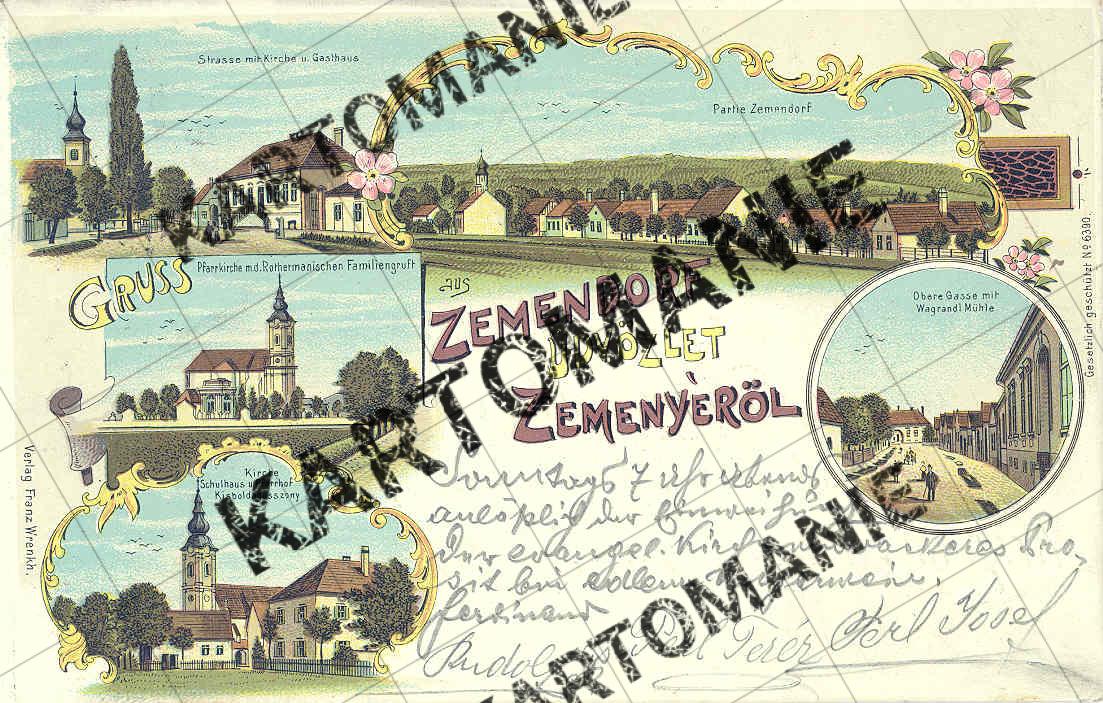 Strasse mit Kirche u. Gasthaus
Partie Zemendorf
GRUSS
aus
Pfarrkirche m.d. Rothermanischen Familiengruft
ZEMENDORF
ÜDVÖZLET
ZEMENYÈRÖL
Obere Gasse mit
Wagrandl Mühle
Gesetzlich geschützt No 6390.
Verlag Franz Wrenkh.
Kirche
Schulhaus u. Pfarrhof
Kisboldogasszony
Sonntags 7 Uhr Abends
anläßlich der Einweihung
der evangel. Kirche wackeres Pro-
sit
Ferdinand
Rudolf
KARTOMANIE
KARTOMANIE
KARTOMANIE
KARTOMANIE